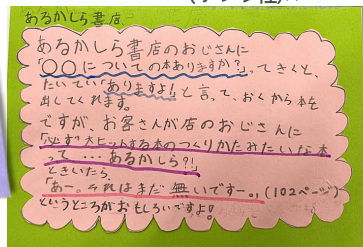 あるかしら書店
あるかしら書店のおじさんに
「〇〇についての本ありますか?」ってきくと、
たいてい「ありますよ!」と言って、おくから本を
出してくれます。
ですが、お客さんが店のおじさんに
「必ず大ヒットする本のつくりかたみたいな本
って…あるかしら?!」
ときいたら、
「あー。それはまだ無いですー。」(102ページ)
というところがおもしろいですよ!